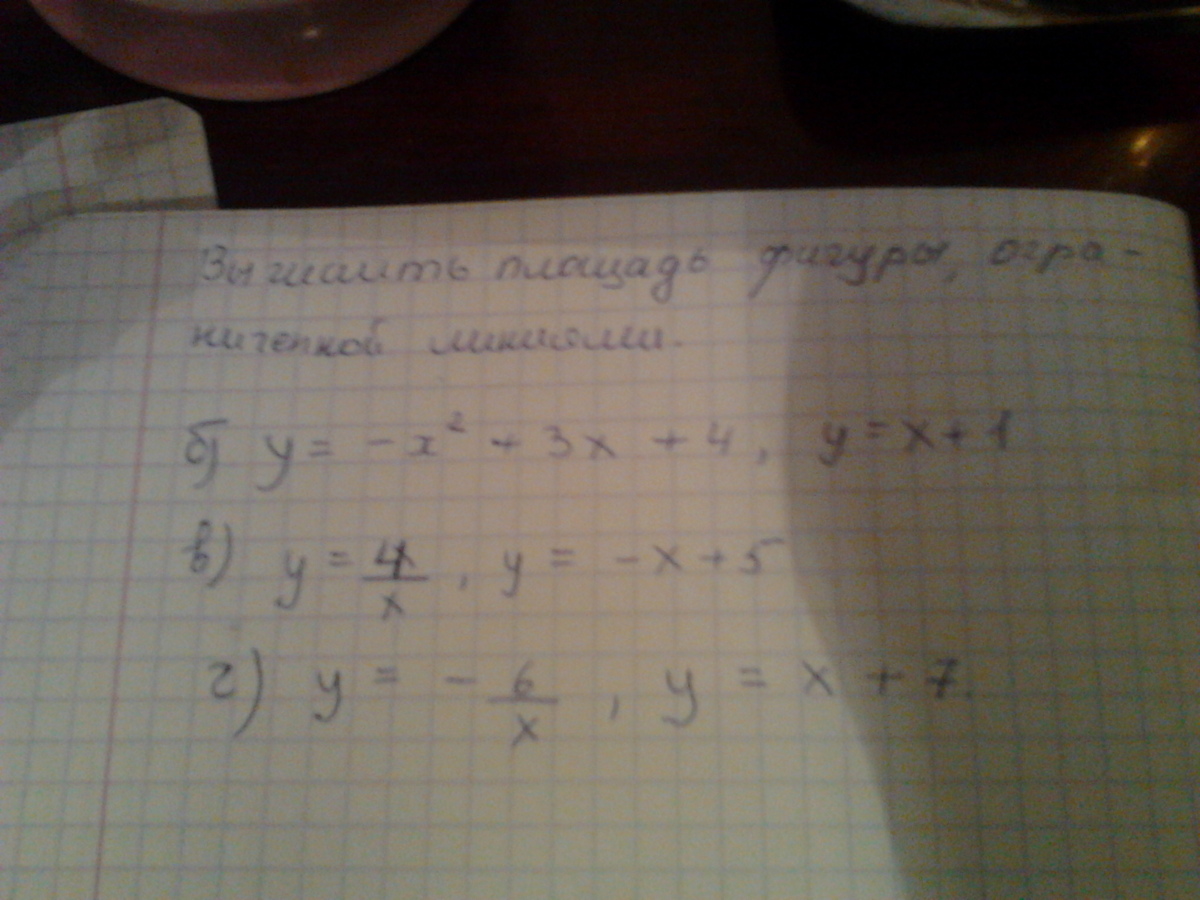 Вычислить площадь фигуры, огра-
ниченной линиями.
б) y = -x² + 3x + 4, y = x + 1
в) y = 4/x, y = -x + 5
г) y = -6/x, y = x + 7.